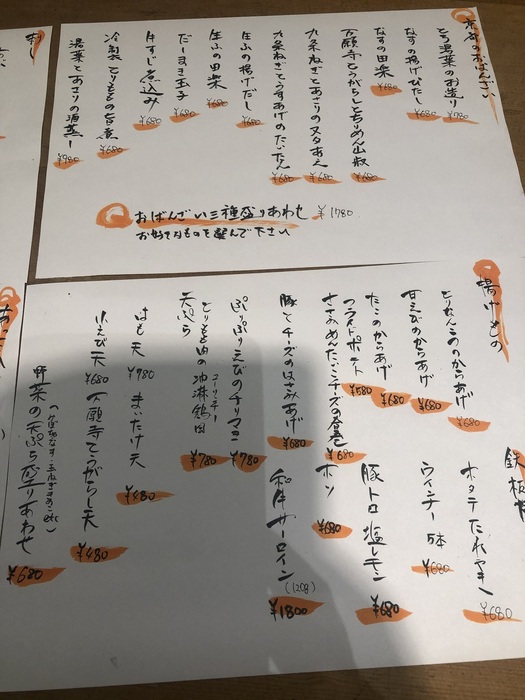 京都のおばんざい
とち湯葉のお造り ¥780
なすの揚げびたし ¥680
なすの田楽 ¥680
万願寺とうがらしとちりめん山椒 ¥680
九条ねぎとあさりのヌタあえ ¥680
九条ねぎとうすあげのたいたん ¥680
生ふの揚げだし ¥680
生ふの田楽 ¥680
だしまき玉子 ¥680
牛すじ煮込み ¥680
冷製とりももの旨煮 ¥680
湯葉とあさりの酒蒸し ¥780
おばんざい三種盛りあわせ ¥1780
お好きなものを選んで下さい
揚げもの
とりなんこつのからあげ ¥680
甘えびのからあげ ¥680
たこのからあげ ¥680
フライドポテト ¥580
ささみめんたいこチーズの春巻 ¥680
豚とチーズのはさみあげ ¥680
ぷりぷりえびのチリマヨ ¥780
とりもも肉の油淋鶏 ¥780
ユーリンチー
天ぷら
はも天 ¥780
まいたけ天 ¥480
小えび天 ¥680
万願寺とうがらし天 ¥480
野菜の天ぷら盛りあわせ ¥680
鉄板
ホタテたれやき ¥680
ウィンナー 5本 ¥680
豚トロ塩レモン ¥680
ホソ ¥680
和牛サーロイン (120g) ¥1800
刺し